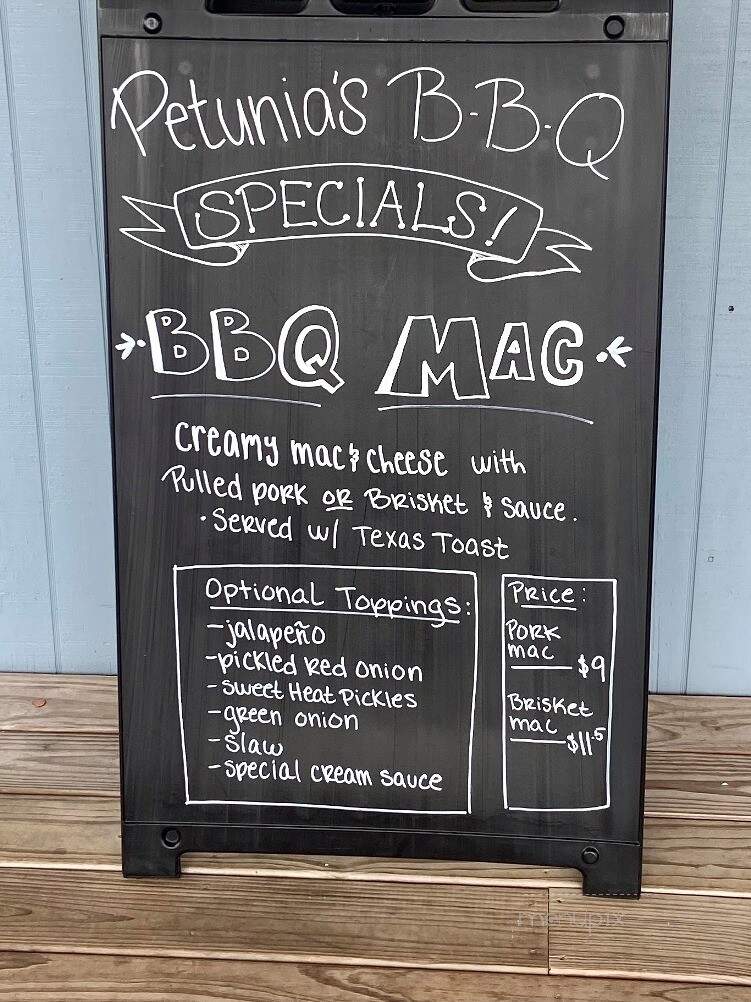 Petunia's B-B-Q
SPECIALS!
BBQ MAC
creamy mac & cheese with
Pulled pork or Brisket & sauce.
·Served w/ Texas Toast
Optional Toppings:
-jalapeño
-pickled Red onion
-sweet Heat Pickles
-green onion
-Slaw
-special cream sauce
Price:
Pork
mac
$9
Brisket
mac
$11.5
menupix